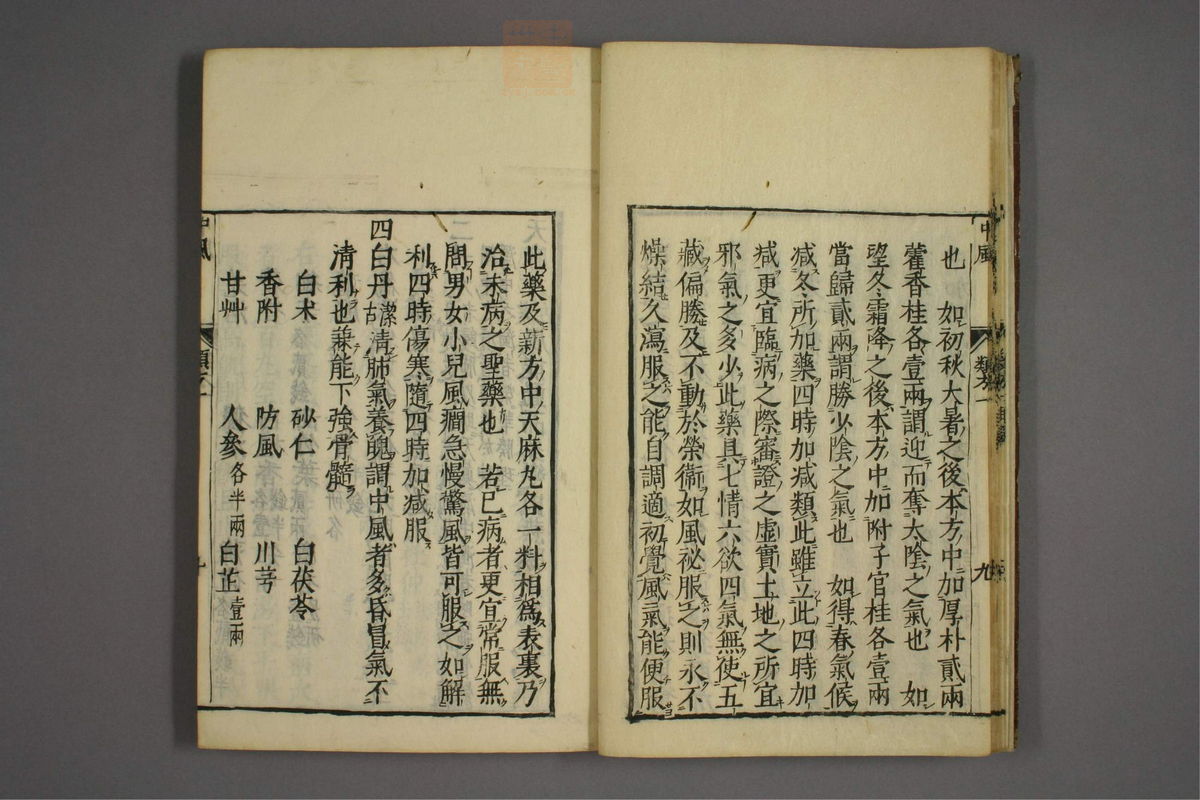 中風
類之一
九
也　如初秋大暑之後本方中加厚朴貳兩
藿香桂各壹兩謂迎而奪太陰之氣也　如
望冬霜降之後本方中加附子官桂各壹兩
當歸貳兩謂勝少陰之氣也　如得春氣候
減冬所加藥四時加减類此雖立此四時加
减更宜臨病之際審證之虛實土地之所宜
邪氣之多少此藥具七情六欲四氣無使五
藏偏勝及不動於榮衞如風祕服之則永不
燥結久瀉服之能自調適初覺風氣能便服
此藥及新方中天麻丸各一料相爲表裏乃
治未病之聖藥也　若已病者更宜常服無
問男女小兒風癇急慢驚風皆可服之如解
利四時傷寒隨四時加减服
四白丹潔古清肺氣養魄謂中風者多昏冒氣不
清利也兼能下強骨髓
白朮　砂仁　白茯苓
香附　防風　川芎
甘艸　人參各半兩　白芷壹兩
中風
類之一